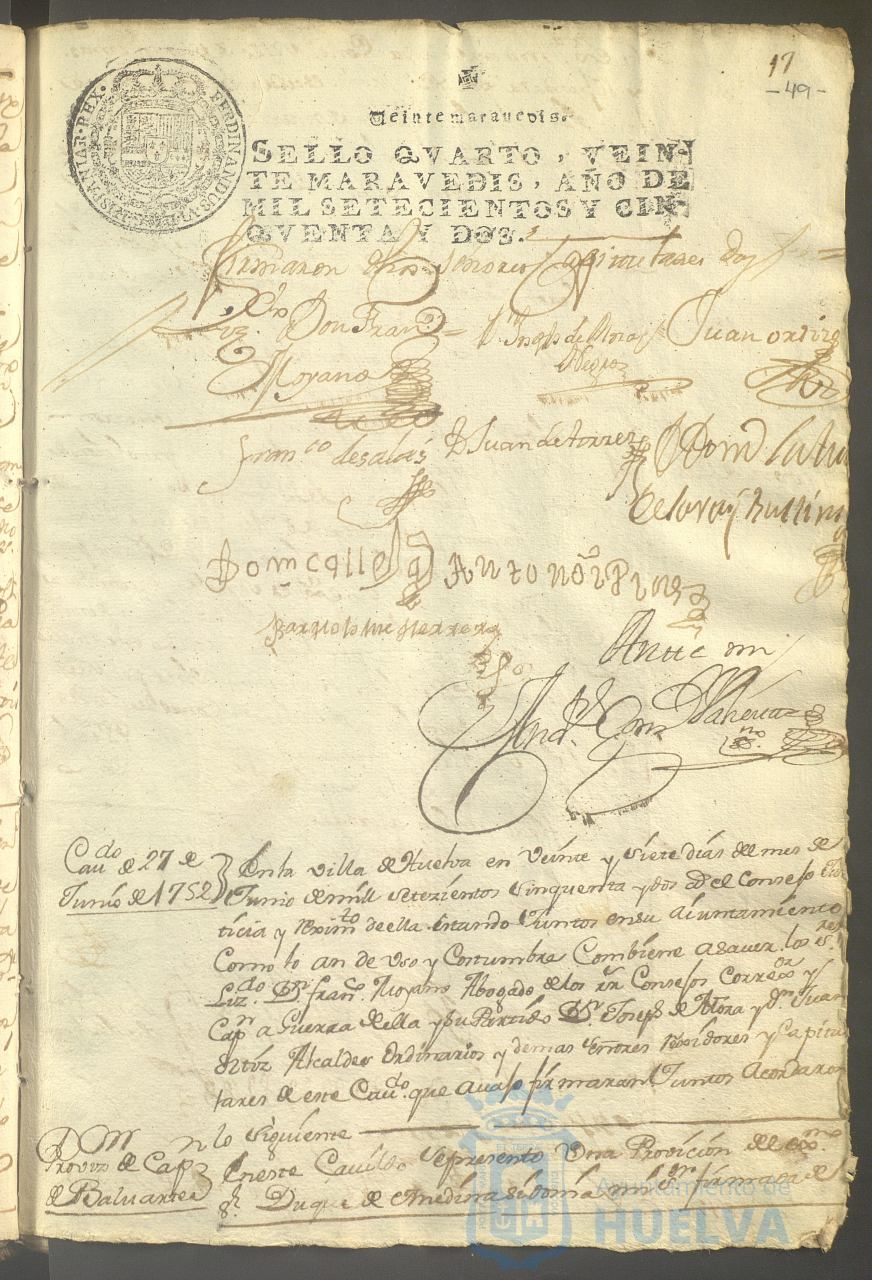 17
-49-
FERDINANDUS VI D G HISPANIAR REX
Veinte maravedis.
SELLO QVARTO, VEIN-
TE MARAVEDIS, AÑO DE
MIL SETECIENTOS Y CIN-
QVENTA Y DOS.
firmaron dhos señores Capitulares doy fee =
Lizdo Don Franco =
Moyano
Dn Joseph de Mora
Negro
Juan ortiz
Franco de salas
D Juan de torres
Bartolome Herrera
Ante mi
Cavdo de 27 de
Junio de 1752
En la villa de Huelva en Veinte y siete dias del mes de
Junio de mill setezientos sinquenta y dos el Consejo Jus
ticia y reximto de ella estando Juntos en su Aiuntamiento
Como lo an de Uso y Costumbre Combiene a saver los sres
Lizdo Dn Franco Moyano Abogado de los rs Consejos Corregor y
Capn a Guerra de ella y su Partido Dn Joseph de Mora y Dn Juan
Ortiz Alcaldes Ordinarios y demas señores rexidores y Capitu
lares de este Cavdo que avajo firmaran Juntos Acordaron
lo siguiente
Provizn de Capn
de Baluartes
En este Cavildo se presento Una Provicion del exmo
sr Duque de Medinasidonia mi sr firmada de
Ayuntamiento de
HUELVA